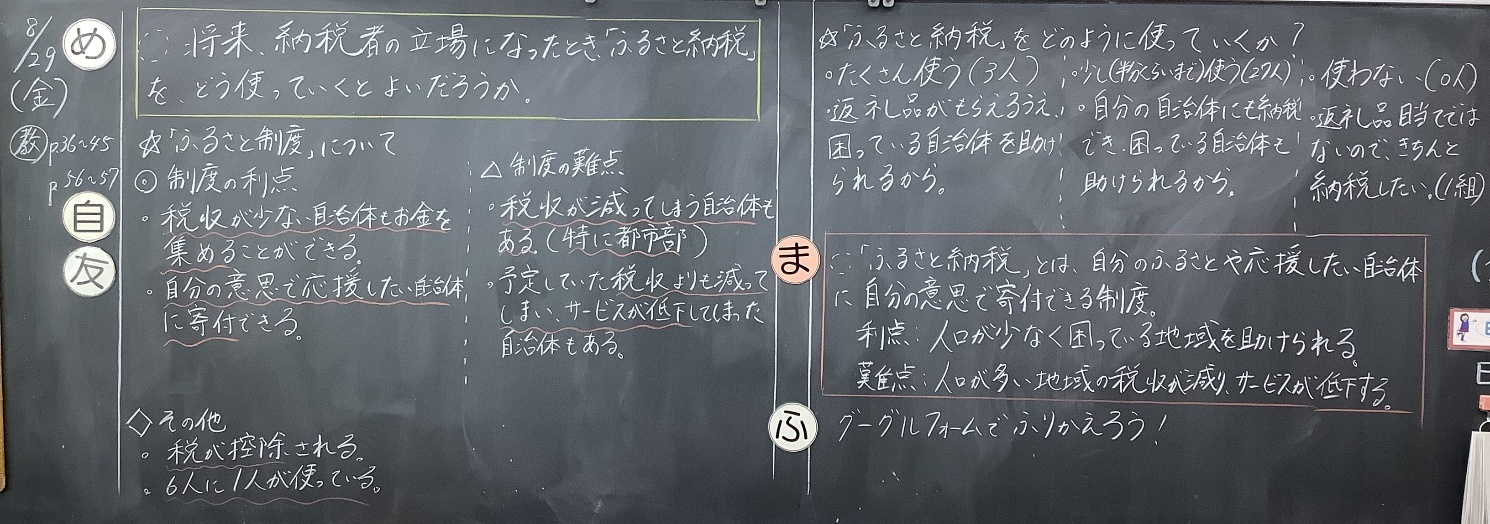 8/29
(金)
教 p36~45
p56~57
め
将来、納税者の立場になったとき、「ふるさと納税」
を、どう使っていくとよいだろうか。
自
友
☆「ふるさと制度」について
◎ 制度の利点
・税収が少ない自治体もお金を
集めることができる。
・自分の意思で応援したい自治体
に寄付できる。
△ 制度の難点
・税収が減ってしまう自治体も
ある。(特に都市部)
・予定していた税収よりも減って
しまい、サービスが低下してしまった
自治体もある。
◇その他
・税が控除される。
・6人に1人が使っている。
☆「ふるさと納税」をどのように使っていくか?
・たくさん使う(3人)
・返礼品がもらえるうえ、
困っている自治体を助け
られるから。
・少し(半分くらいまで)使う(27人)
・自分の自治体にも納税
でき、困っている自治体も
助けられるから。
・使わない(0人)
・返礼品目当てでは
ないので、きちんと
納税したい。(1組)
ま
「ふるさと納税」とは、自分のふるさとや応援したい自治体
に自分の意思で寄付できる制度。
利点:人口が少なく困っている地域を助けられる。
難点:人口が多い地域の税収が減り、サービスが低下する。
ふ
グーグルフォームでふりかえろう!